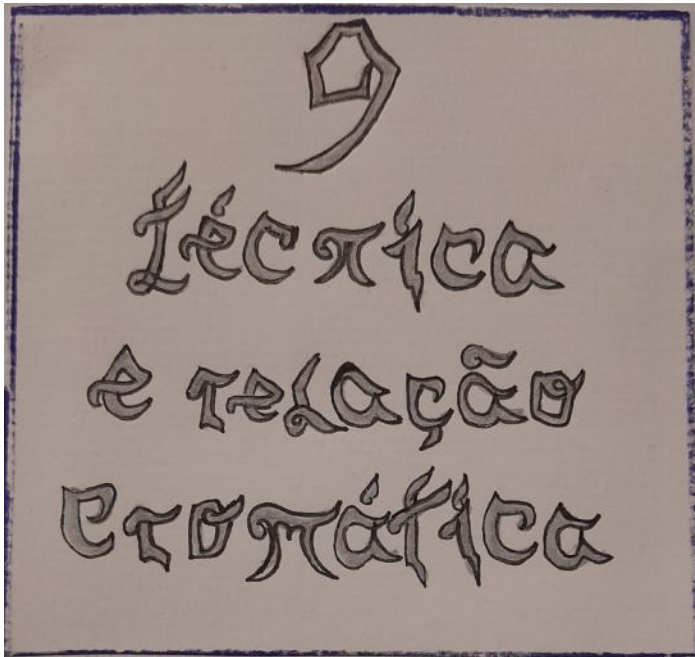 9
técnica
e relação
cromática